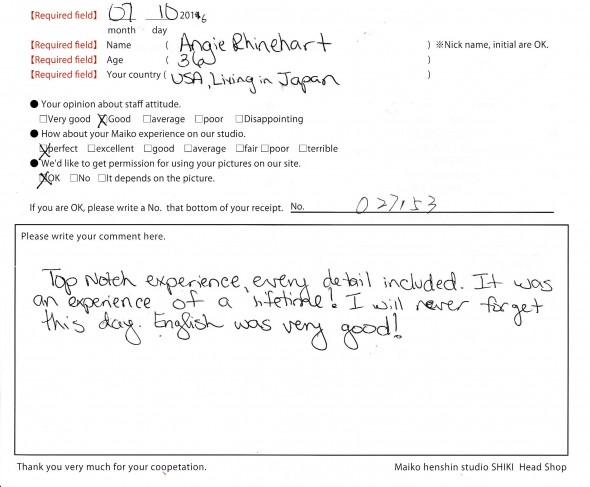 【Required field】 07 10 2016
month day
【Required field】 Name ( Angie Rhinehart ) ※Nick name, initial are OK.
【Required field】 Age ( 36 )
【Required field】 Your country ( USA, Living in Japan )
● Your opinion about staff attitude.
□Very good ☒Good □average □poor □Disappointing
● How about your Maiko experience on our studio.
☒perfect □excellent □good □average □fair □poor □terrible
● We'd like to get permission for using your pictures on our site.
☒OK □No □It depends on the picture.
If you are OK, please write a No. that bottom of your receipt. No. 027153
Please write your comment here.
Top Notch experience, every detail included. It was
an experience of a lifetime! I will never forget
this day. English was very good!
Thank you very much for your coopetation. Maiko henshin studio SHIKI Head Shop